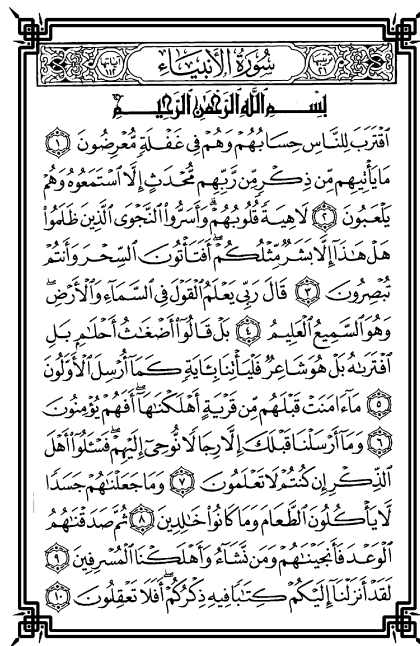 ترتيبها ٢١ سُورَةُ الأَنبِيَاءِ آياتها ١١٢
بِسْمِ ٱللَّهِ ٱلرَّحْمَٰنِ ٱلرَّحِيمِ
ٱقْتَرَبَ لِلنَّاسِ حِسَابُهُمْ وَهُمْ فِى غَفْلَةٍ مُّعْرِضُونَ ۝١
مَا يَأْتِيهِم مِّن ذِكْرٍ مِّن رَّبِّهِم مُّحْدَثٍ إِلَّا ٱسْتَمَعُوهُ وَهُمْ
يَلْعَبُونَ ۝٢ لَاهِيَةً قُلُوبُهُمْ ۗ وَأَسَرُّوا۟ ٱلنَّجْوَى ٱلَّذِينَ ظَلَمُوا۟
هَلْ هَٰذَآ إِلَّا بَشَرٌ مِّثْلُكُمْ ۖ أَفَتَأْتُونَ ٱلسِّحْرَ وَأَنتُمْ
تُبْصِرُونَ ۝٣ قَالَ رَبِّى يَعْلَمُ ٱلْقَوْلَ فِى ٱلسَّمَآءِ وَٱلْأَرْضِ ۖ
وَهُوَ ٱلسَّمِيعُ ٱلْعَلِيمُ ۝٤ بَلْ قَالُوٓا۟ أَضْغَٰثُ أَحْلَٰمٍ بَلِ
ٱفْتَرَىٰهُ بَلْ هُوَ شَاعِرٌ فَلْيَأْتِنَا بِـَٔايَةٍ كَمَآ أُرْسِلَ ٱلْأَوَّلُونَ
۝٥ مَآ ءَامَنَتْ قَبْلَهُم مِّن قَرْيَةٍ أَهْلَكْنَٰهَآ ۖ أَفَهُمْ يُؤْمِنُونَ
۝٦ وَمَآ أَرْسَلْنَا قَبْلَكَ إِلَّا رِجَالًا نُّوحِىٓ إِلَيْهِمْ ۖ فَسْـَٔلُوٓا۟ أَهْلَ
ٱلذِّكْرِ إِن كُنتُمْ لَا تَعْلَمُونَ ۝٧ وَمَا جَعَلْنَٰهُمْ جَسَدًا
لَّا يَأْكُلُونَ ٱلطَّعَامَ وَمَا كَانُوا۟ خَٰلِدِينَ ۝٨ ثُمَّ صَدَقْنَٰهُمُ
ٱلْوَعْدَ فَأَنجَيْنَٰهُمْ وَمَن نَّشَآءُ وَأَهْلَكْنَا ٱلْمُسْرِفِينَ ۝٩
لَقَدْ أَنزَلْنَآ إِلَيْكُمْ كِتَٰبًا فِيهِ ذِكْرُكُمْ ۖ أَفَلَا تَعْقِلُونَ ۝١٠